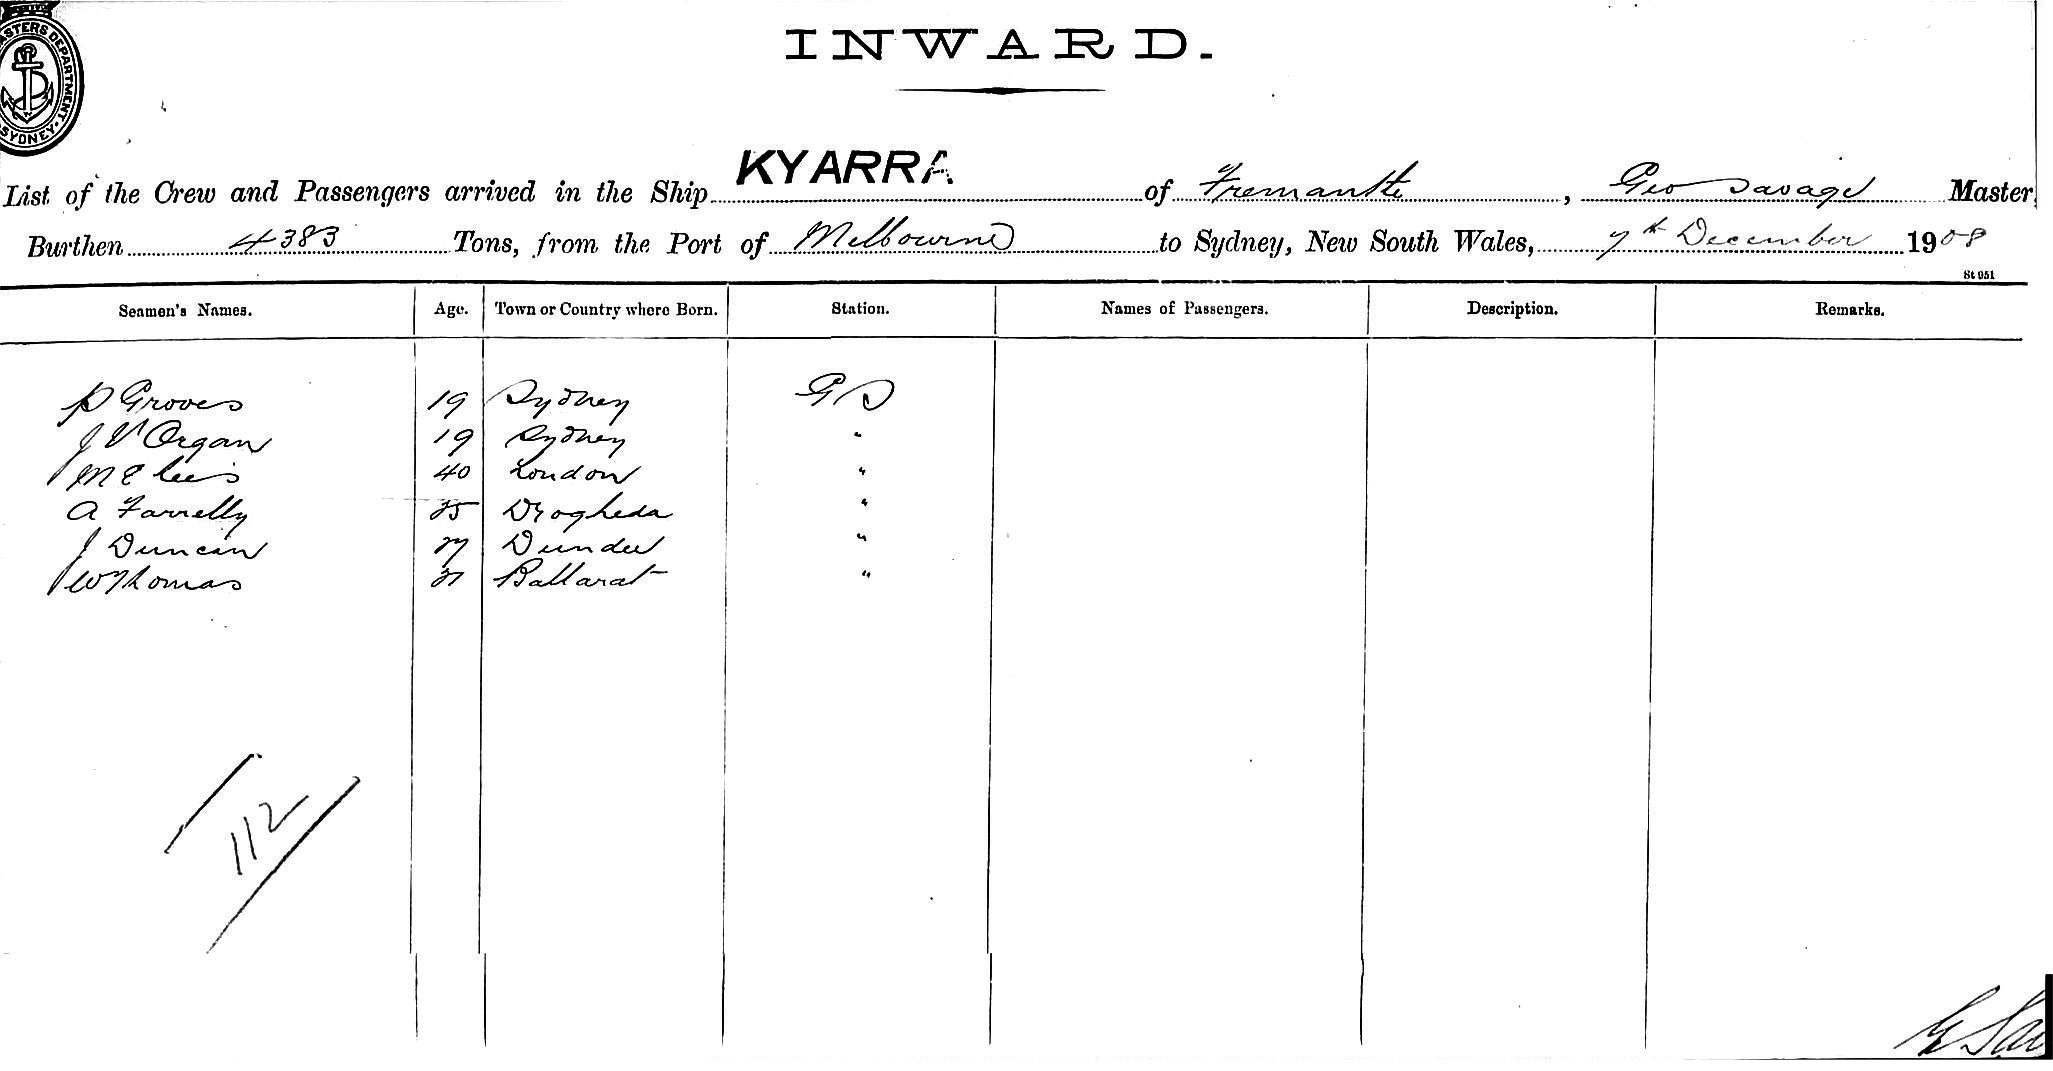 ASTERS DEPARTMENT. SYDNEY.
INWARD.
List of the Crew and Passengers arrived in the Ship KYARRA of Fremantle, Geo Savage Master
Burthen 4383 Tons, from the Port of Melbourne to Sydney, New South Wales, 7th December 1908
St 951
Seamen's Names. Age. Town or Country where Born. Station. Names of Passengers. Description. Remarks.
P Groves 19 Sydney G S
J V Organ 19 Sydney "
M E Lewis 40 London "
A Farrelly 35 Drogheda "
J Duncan 27 Dundee "
W Thomas 31 Ballarat "
112
G Sav